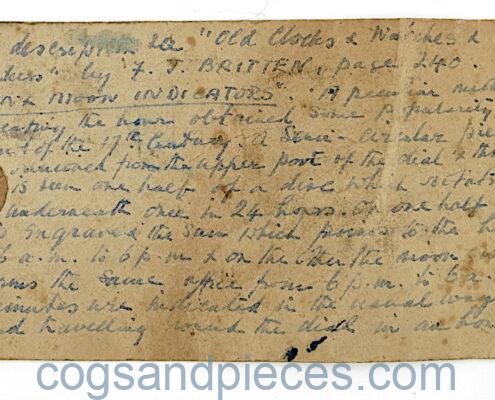 descript n see "Old Clocks & Watches &
ders" by F. J. BRITTEN, page 240.
N & MOON INDICATORS". A peculiar
the hour obtained some popularity
of the 17th Century. A Semi-circular pie
removed from the upper part of the dial & th
is seen one half of a disc which rotat
underneath once in 24 hours. On one half
engraved the Sun which points to the h
6 a.m. to 6 p.m & on the other the moon
orms the same office from 6 p.m. to 6 a.
minutes are indicated in the usual way
nd travelling round the dial in an hou
cogsandpieces.com